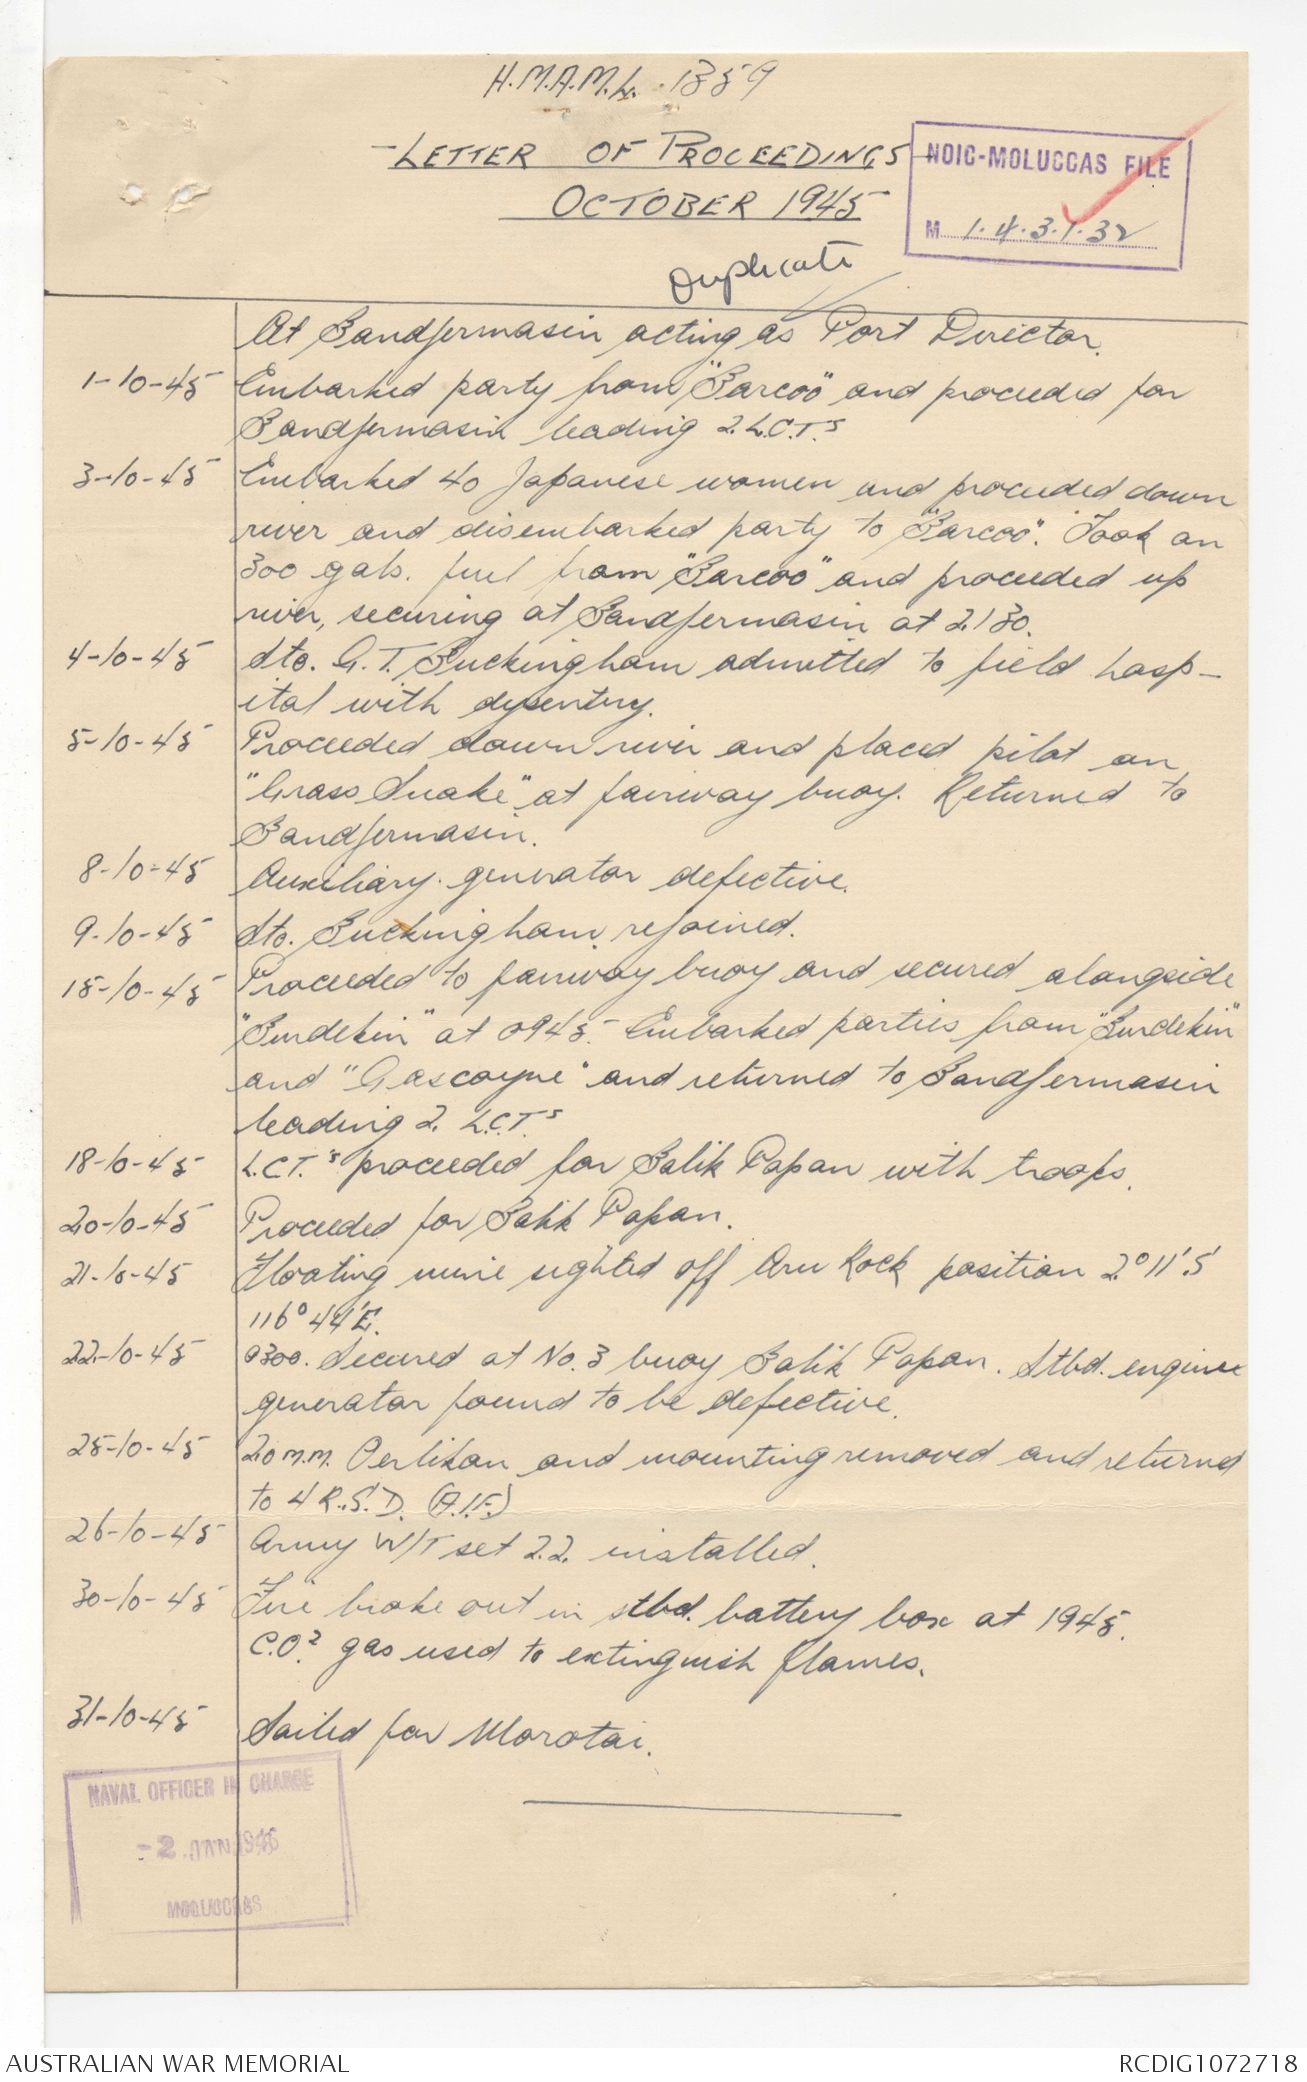 H.M.A.M.L. 1359
LETTER OF PROCEEDINGS
OCTOBER 1945
Duplicate
NOIC-MOLUCCAS FILE
M 1.4.3.1.32
At Bandjermasin acting as Port Director.
1-10-45 Embarked party from "Barcoo" and proceeded for
Bandjermasin leading 2 L.C.T.s
3-10-45 Embarked 40 Japanese women and proceeded down
river and disembarked party to "Barcoo". Took on
300 gals. fuel from "Barcoo" and proceeded up
river, securing at Bandjermasin at 2130.
4-10-45 Sto. G.T. Buckingham admitted to field hosp-
ital with dysentry.
5-10-45 Proceeded down river and placed pilot on
"Grass Snake" at fairway buoy. Returned to
Bandjermasin.
8-10-45 Auxiliary generator defective.
9-10-45 Sto. Buckingham rejoined.
15-10-45 Proceeded to fairway buoy and secured alongside
"Burdekin" at 0945. Embarked parties from "Burdekin"
and "Gascoyne" and returned to Bandjermasin
leading 2 L.C.T.s
18-10-45 L.C.T.'s proceeded for Balik Papan with troops.
20-10-45 Proceeded for Balik Papan.
21-10-45 Floating mine sighted off Aru Rock position 2°11'S
116°44'E.
22-10-45 0300. Secured at No. 3 buoy Balik Papan. Stbd. engine
generator found to be defective.
25-10-45 20 m.m. Oerlikon and mounting removed and returned
to 4 R.S.D. (A.I.F.)
26-10-45 Army W/T set 22 installed.
30-10-45 Fire broke out in stbd. battery box at 1945.
C.O.2 gas used to extinguish flames.
31-10-45 Sailed for Morotai.
NAVAL OFFICER IN CHARGE
-2 JAN 1946
MOLUCCAS
AUSTRALIAN WAR MEMORIAL
RCDIG1072718